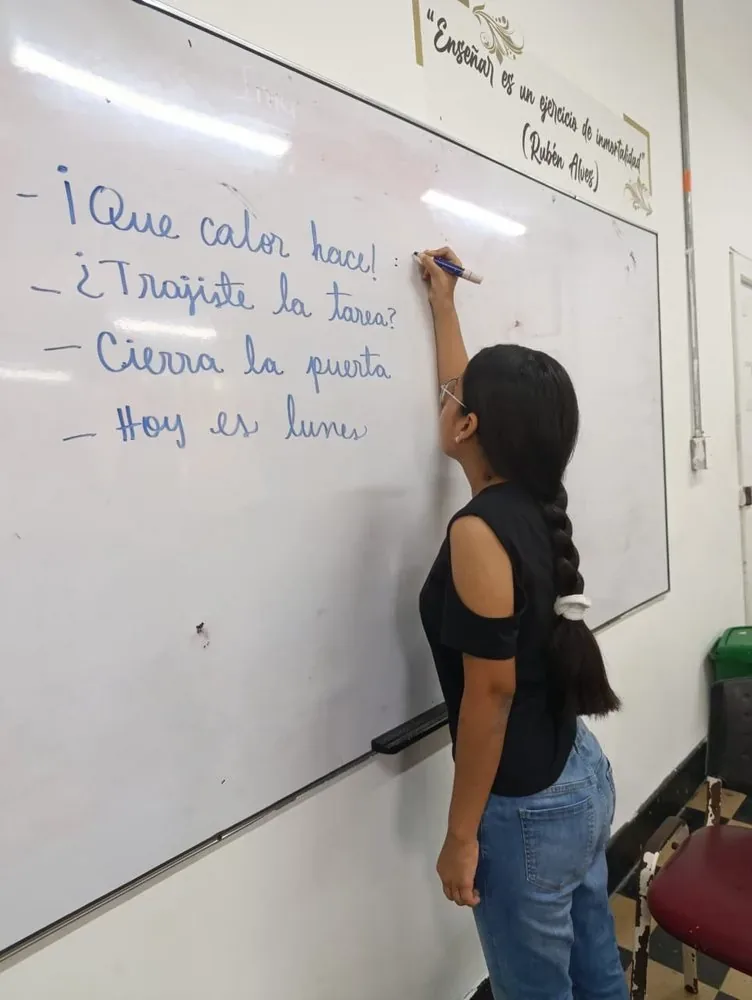 "Enseñar es un ejercicio de inmortalidad"
(Rubén Alves)
- ¡Que calor hace! :
- ¿Trajiste la tarea?
- Cierra la puerta
- Hoy es lunes